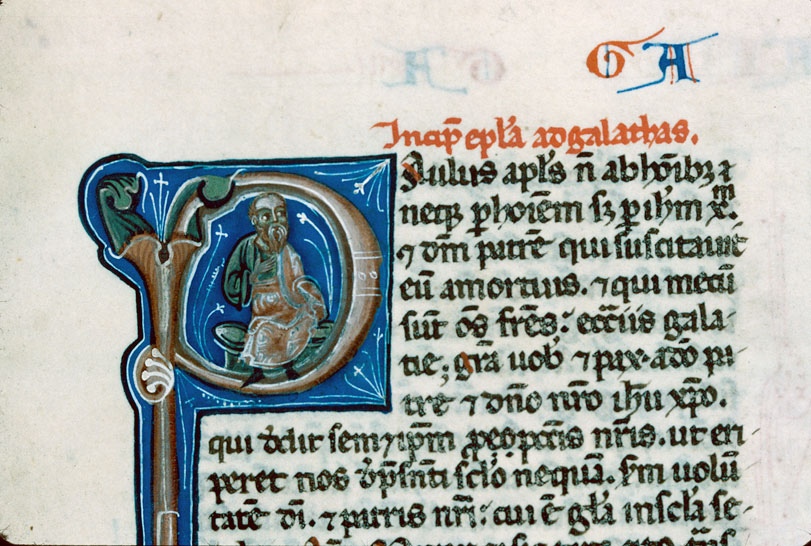 G A
Incip̄ ep̄l'a ad galathas.
Aulus apl's n̄ ab hōībꝫ ⁊
neqꝫ ꝑ hoīem sꝫ ꝑ ih̄m xp̄m.
⁊ dm̄ patrē qui suscitauit
eū a mortuis. ⁊ qui mecū
sūt om̄s fr̄es: eccl'iis gala-
tie; gr̄a uob' ⁊ pax. a dō pa-
tre ⁊ dn̄o nr̄o ih'u xp̄o.
qui dedit semetip̄m pro peccatis nr̄is. ut eri-
peret nos de p̄sn̄ti sc'lo nequā. s'm uolū-
tatē dī. ⁊ patris nr̄i: cui ē gl'a in sc'la se-